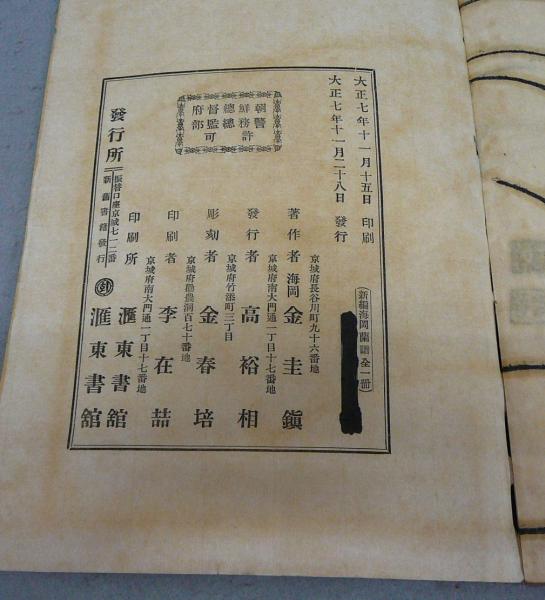 大正七年十一月十五日 印刷
大正七年十一月二十八日 發行
朝鮮總督府
警務總監部
許可
(新編海岡蘭譜全一冊)
京城府長谷川町九十六番地
著作者 海岡 金圭鎭
京城府南大門通一丁目十七番地
發行者 高裕相
京城府竹添町三丁目
彫刻者 金春培
京城府勸農洞百七十番地
印刷者 李在喆
京城府南大門通一丁目十七番地
印刷所 滙東書舘
發行所
振替口座京城七一二番
新舊書籍發行
滙東書舘